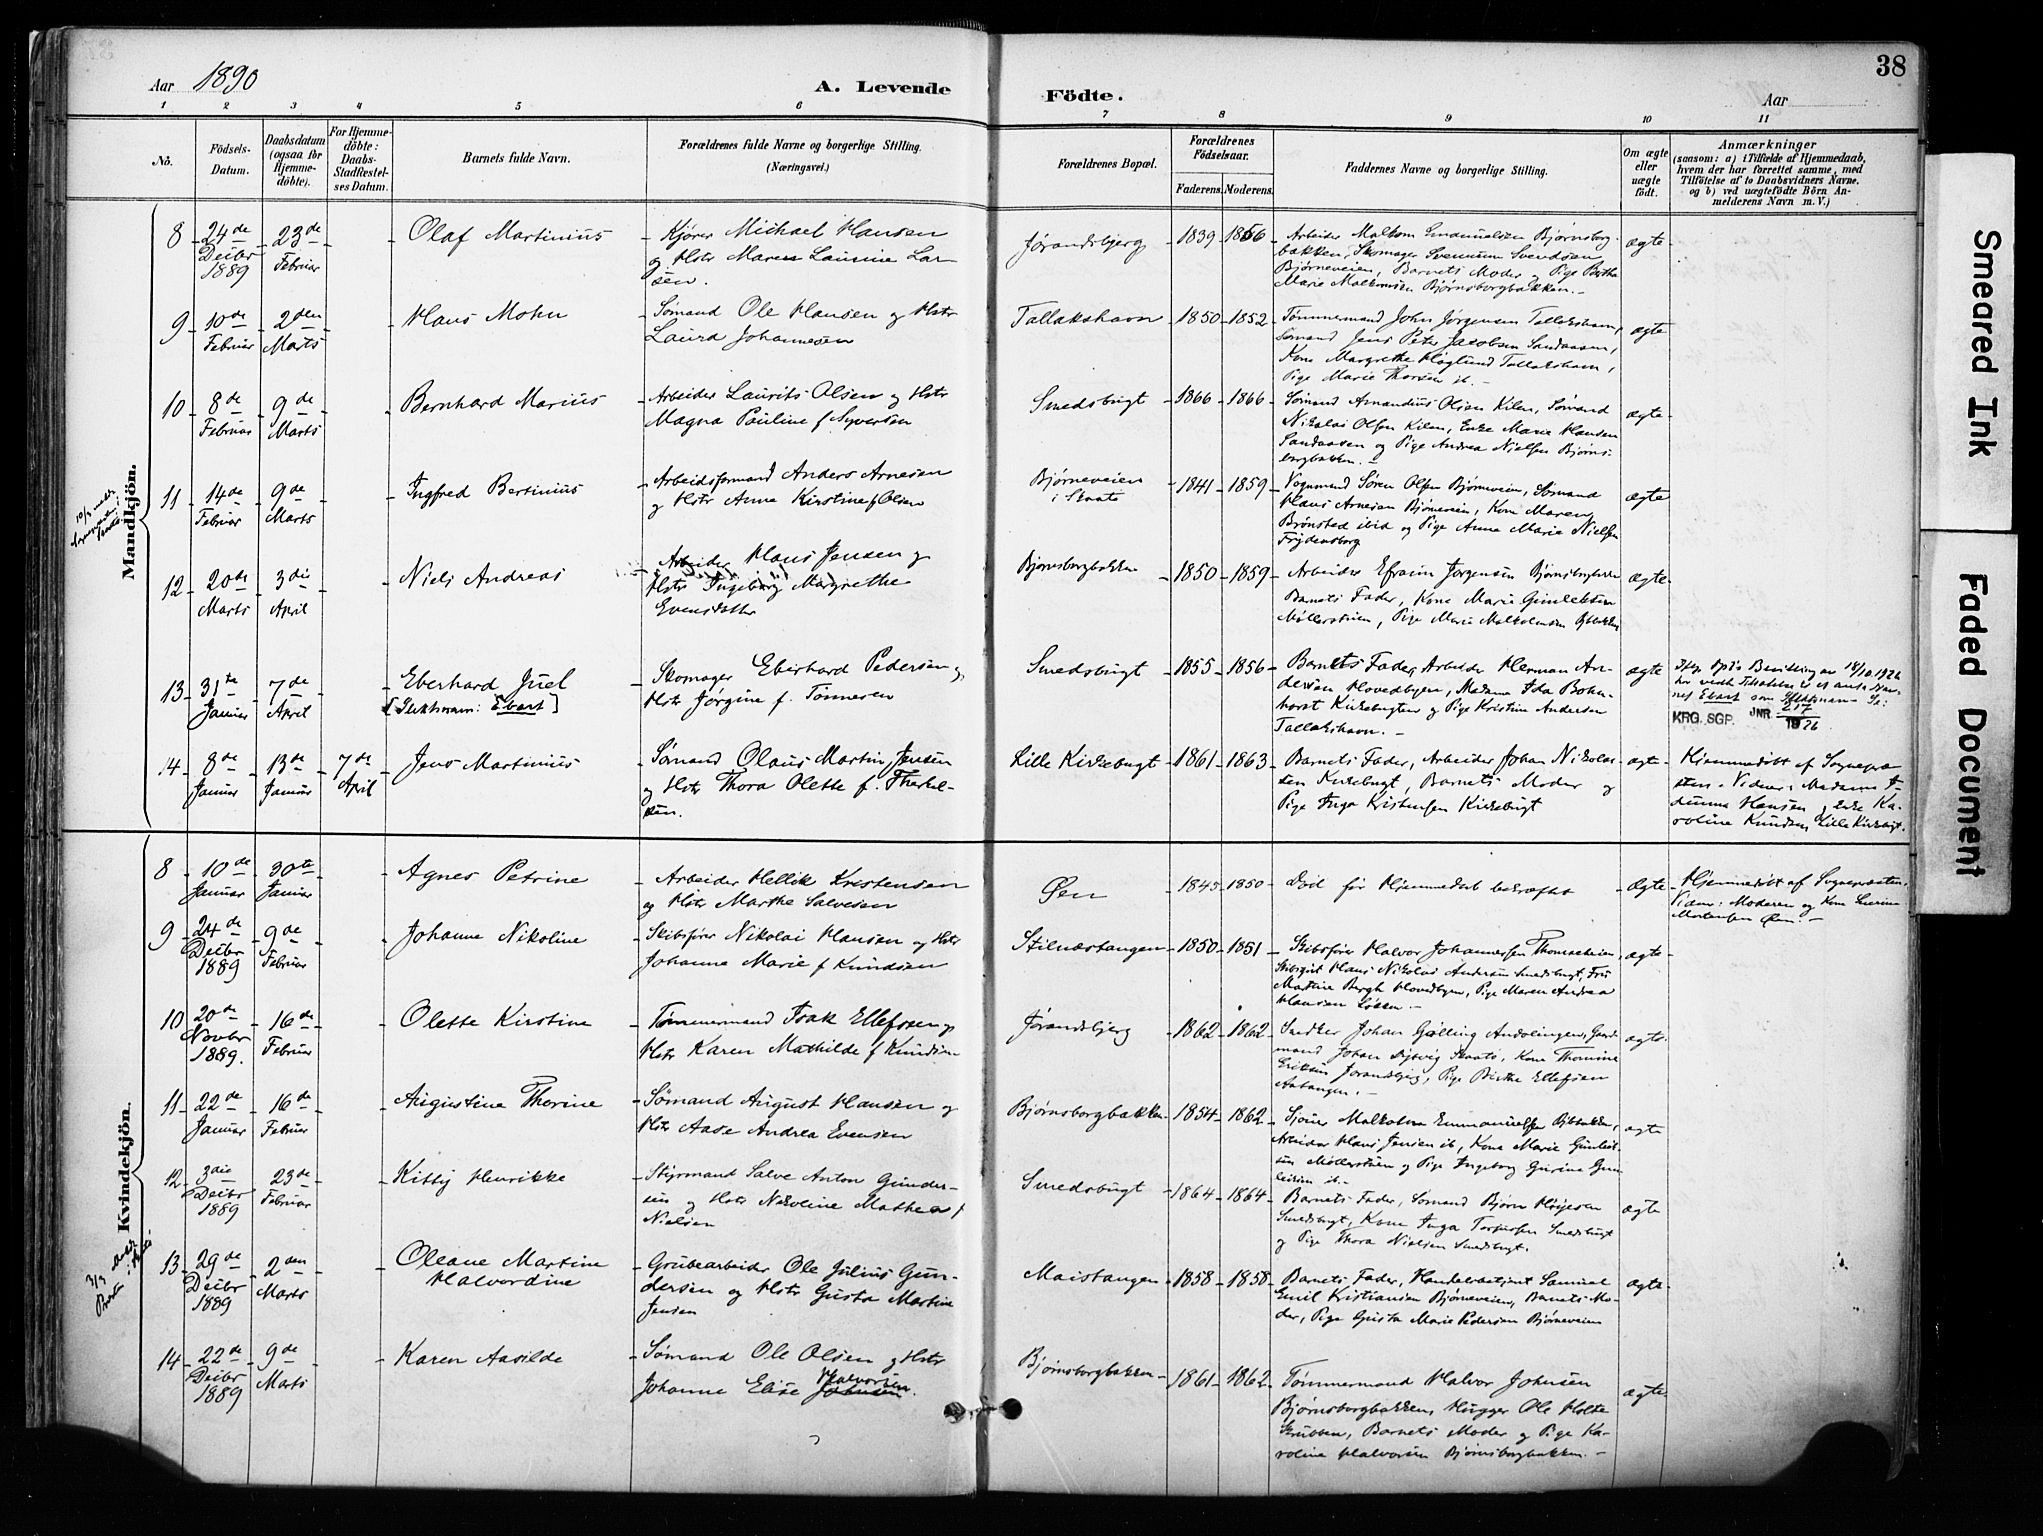 Aar 1890
A. Levende Födte.
Aar
38
1 2 3 4 5 6 7 8 9 10 11
No.
Födsels-Datum.
Daabsdatum (ogsaa for Hjemme-döbte).
For Hjemme-döbte: Daabs-Stadfæstel-ses Datum.
Barnets fulde Navn.
Forældrenes fulde Navne og borgerlige Stilling. (Næringsvei.)
Forældrenes Bopæl.
Forældrenes Födselsaar.
Faderens. Moderens.
Faddernes Navne og borgerlige Stilling.
Om ægte eller uægte födt.
Anmærkninger
(saasom: a) i Tilfælde af Hjemmedaab, hvem der har forrettet samme, med Tilföielse af to Daabsvidners Navne, og b) ved uægtefödte Börn An-melderens Navn m. V.)
Mandkjön.
8 24de Decbr 1889 23de Februar
Olaf Martinius
Kjører Michael Hansen
og Hstr Maren Laurine Lar-
sen.
Jørandsbjerg 1839 1856
Arbeider Malkom Emanuelsen Bjørnsborg-
bakken, Skomager Svennum Svendsen
Bjørneveien, Barnets Moder og Pige Berthe
Marie Malkomsen Bjørnsborgbakken.
ægte
9 10de Februar 2den Marts
Hans Mohn
Sømand Ole Hansen og Hstr
Laura Johannesen
Tallakshavn 1850 1852
Tømmermand John Jørgensen Tallakshavn,
Sømand Jens Peter Jacobsen Sandaasen,
Kone Margrethe Høglund Tallakshavn,
Pige Marie Thorsen ib.
ægte
10 8de Februar 9de Marts
Bernhard Marius
Arbeider Laurits Olsen og Hstr
Magna Pauline f Syversen
Smedsbugt 1866 1866
Sømand Amandius Olsen Kilen, Sømand
Nikolai Olsen Kilen, Enke Marie Hansen
Sandaasen og Pige Andrea Nielsen Bjørns-
borgbakken.
ægte
11 14de Februar 9de Marts
Ingfred Bertinius
Arbeidsformand Anders Arnesen
og Hstr Anne Kirstine f Olsen
Bjørneveien
i Skaatø
1841 1859
Vognmand Søren Olsen Bjørneveien, Sømand
Hans Arnesen Bjørneveien, Kone Maren
Brønsted ibid og Pige Anne Marie Nielsen
Frydensborg
ægte
12 20de Marts 3die April
Niels Andreas
Arbeider Hans Jensen og
Hstr Ingeborg Margrethe
Evensdatter
Bjørnsborgbakken 1850 1859
Arbeider Efraim Jørgensen Bjørnsborgbakken
Barnets Fader, Kone Marie Gunleksen
Møllerstuen, Pige Marie Malkolmsen Bjbbakken
ægte
13 31te Januar 7de April
Eberhard Juel
[Slektsnavn: Ebart]
Skomager Eberhard Pedersen og
Hstr Jørgine f. Tønnesen
Smedsbugt 1855 1856
Barnets Fader, Arbeider Herman An-
dersen Hovedbyen, Madame Ida Bohn-
horst Kirkebugten og Pige Kristine Andersen
Tallakshavn.
ægte
Bevilling av 18/10 1926
Ebart som Slektsnavn
KRG. SGP. JNR 217 1926
14 8de Januar 13de Januar 7de April
Jens Martinius
Sømand Olaus Martin Jensen
og Hstr Thora Olette f. Therkel-
sen.
Lille Kirkebugt 1861 1863
Barnets Fader, Arbeider Johan Nikolai-
sen Kirkebugt, Barnets Moder og
Pige Inga Kristensen Kirkebugt
ægte
Hjemmedøbt af Sognepræ-
sten. Vidner: Madame I-
dunna Hansen, Enke Ka-
roline Knudsen Lille Kirkebugt.
Kvindekjön.
8 10de Januar 30te Januar
Agnes Petrine
Arbeider Hellik Kristensen
og Hstr Marthe Salvesen
Øen 1845 1850
Død før Hjemmedaab bekræftet
ægte
Hjemmedøbt af Sognepræsten.
Vidner: Moderen og Kone
Mortensen Øen.
9 24de Decbr 1889 9de Februar
Johanne Nikoline
Skibsfører Nikolai Hansen og Hstr
Johanne Marie f Knudsen
Stilnæstangen 1850 1851
Skibsfører Halvor Johannessen Thomasheien,
Hans Nikolai Andersen Smedsbugt, Fru
Martine Bergh Hovedbyen, Pige Maren Andrea
Hansen Løkken
ægte
10 20de Novbr 1889. 16de Februar
Olette Kirstine
Tømmermand Isak Ellefsen og
Hstr Karen Mathilde f Knudsen
Jørandsbjerg 1862 1862
Snedker Johan
mand Johan Skaatø, Kone Thomine
Eriksen Jørandsbjerg, Pige Birthe Ellefsen
ægte
11 22de Januar 16de Februar
Augustine Thorine
Sømand August Hansen og
Hstr Aase Andrea Evensen
Bjørnsborgbakken 1854 1862
Malkolm Emmanuelsen Bjbbakken,
Arbeider Hans Jensen ib, Kone Marie Gunleik-
sen Møllerstuen og Pige Ingeborg Gurine Gun-
leiksen ib.
ægte
12 3die Decbr 1889 23de Februar
Kitty Henrikke
Styrmand Salve Anton Gunder-
sen og Hstr Nikoline Mathea f
Nielsen
Smedsbugt 1864 1864
Barnets Fader, Sømand Bjørn Høijesen
Smedsbugt, Kone Inga Torjussen Smedsbugt
og Pige Thora Nielsen Smedsbugt.
ægte
13 29de Decbr 1889 2den Marts
Oleane Martine
Halvordine
Grubearbeider Ole Julius Gun-
dersen og Hstr Gusta Martine
Jensen
Maistangen 1858 1858
Barnets Fader, Handelsbetjent Samuel
Emil Kristiansen Bjørneveien, Barnets Mo-
der, Pige Gusta Marie Pedersen Bjørneveien
ægte
14 22de Decbr 1889 9de Marts
Karen Aasilde
Sømand Ole Olsen og Hstr
Johanne Elise Johnsen Halvorsen.
Bjørnsborgbakken 1861 1862
Tømmermand Halvor Johnsen
Bjørnsborgbakken, Hugger Ole Holte
Grubben, Barnets Moder og Pige Ka-
roline Halvorsen Bjørnsborgbakken.
ægte
Smeared Ink
Faded Document